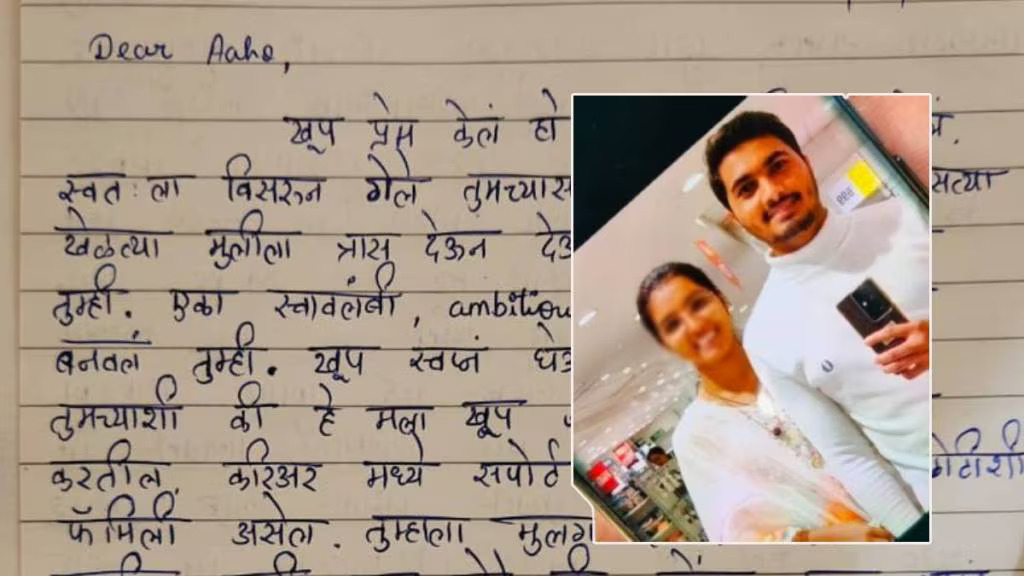 Dear Aaho,
खूप प्रेम केलं हो
स्वतःला विसरून गेले तुमच्यास सत्या
खेळत्या मुलीला त्रास देऊन
तुम्ही. एका स्वावलंबी, ambitiou
बनवलं तुम्ही. खूप स्वप्नं
तुमच्याशी की हे मला खूप
करतील, करिअर मध्ये सपोर्ट
फॅमिली असेल. तुम्हाला मुलग